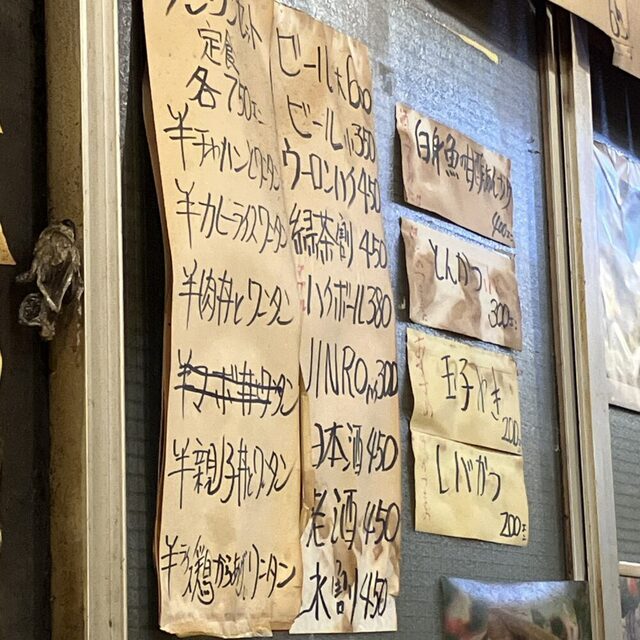 定食
各750エン
半チャーハンとワンタン
半カレーライスワンタン
半肉丼とワンタン
半マーボ丼ワンタン
半親子丼とワンタン
ビール大600
ビール小350
ウーロンハイ450
緑茶割 450
ハイボール380
JINRO 300
日本酒450
老酒450
水割450
白身魚甘酢あんかけ
400エン
とんかつ
300エン
玉子やき
200エン
レバかつ
200エン